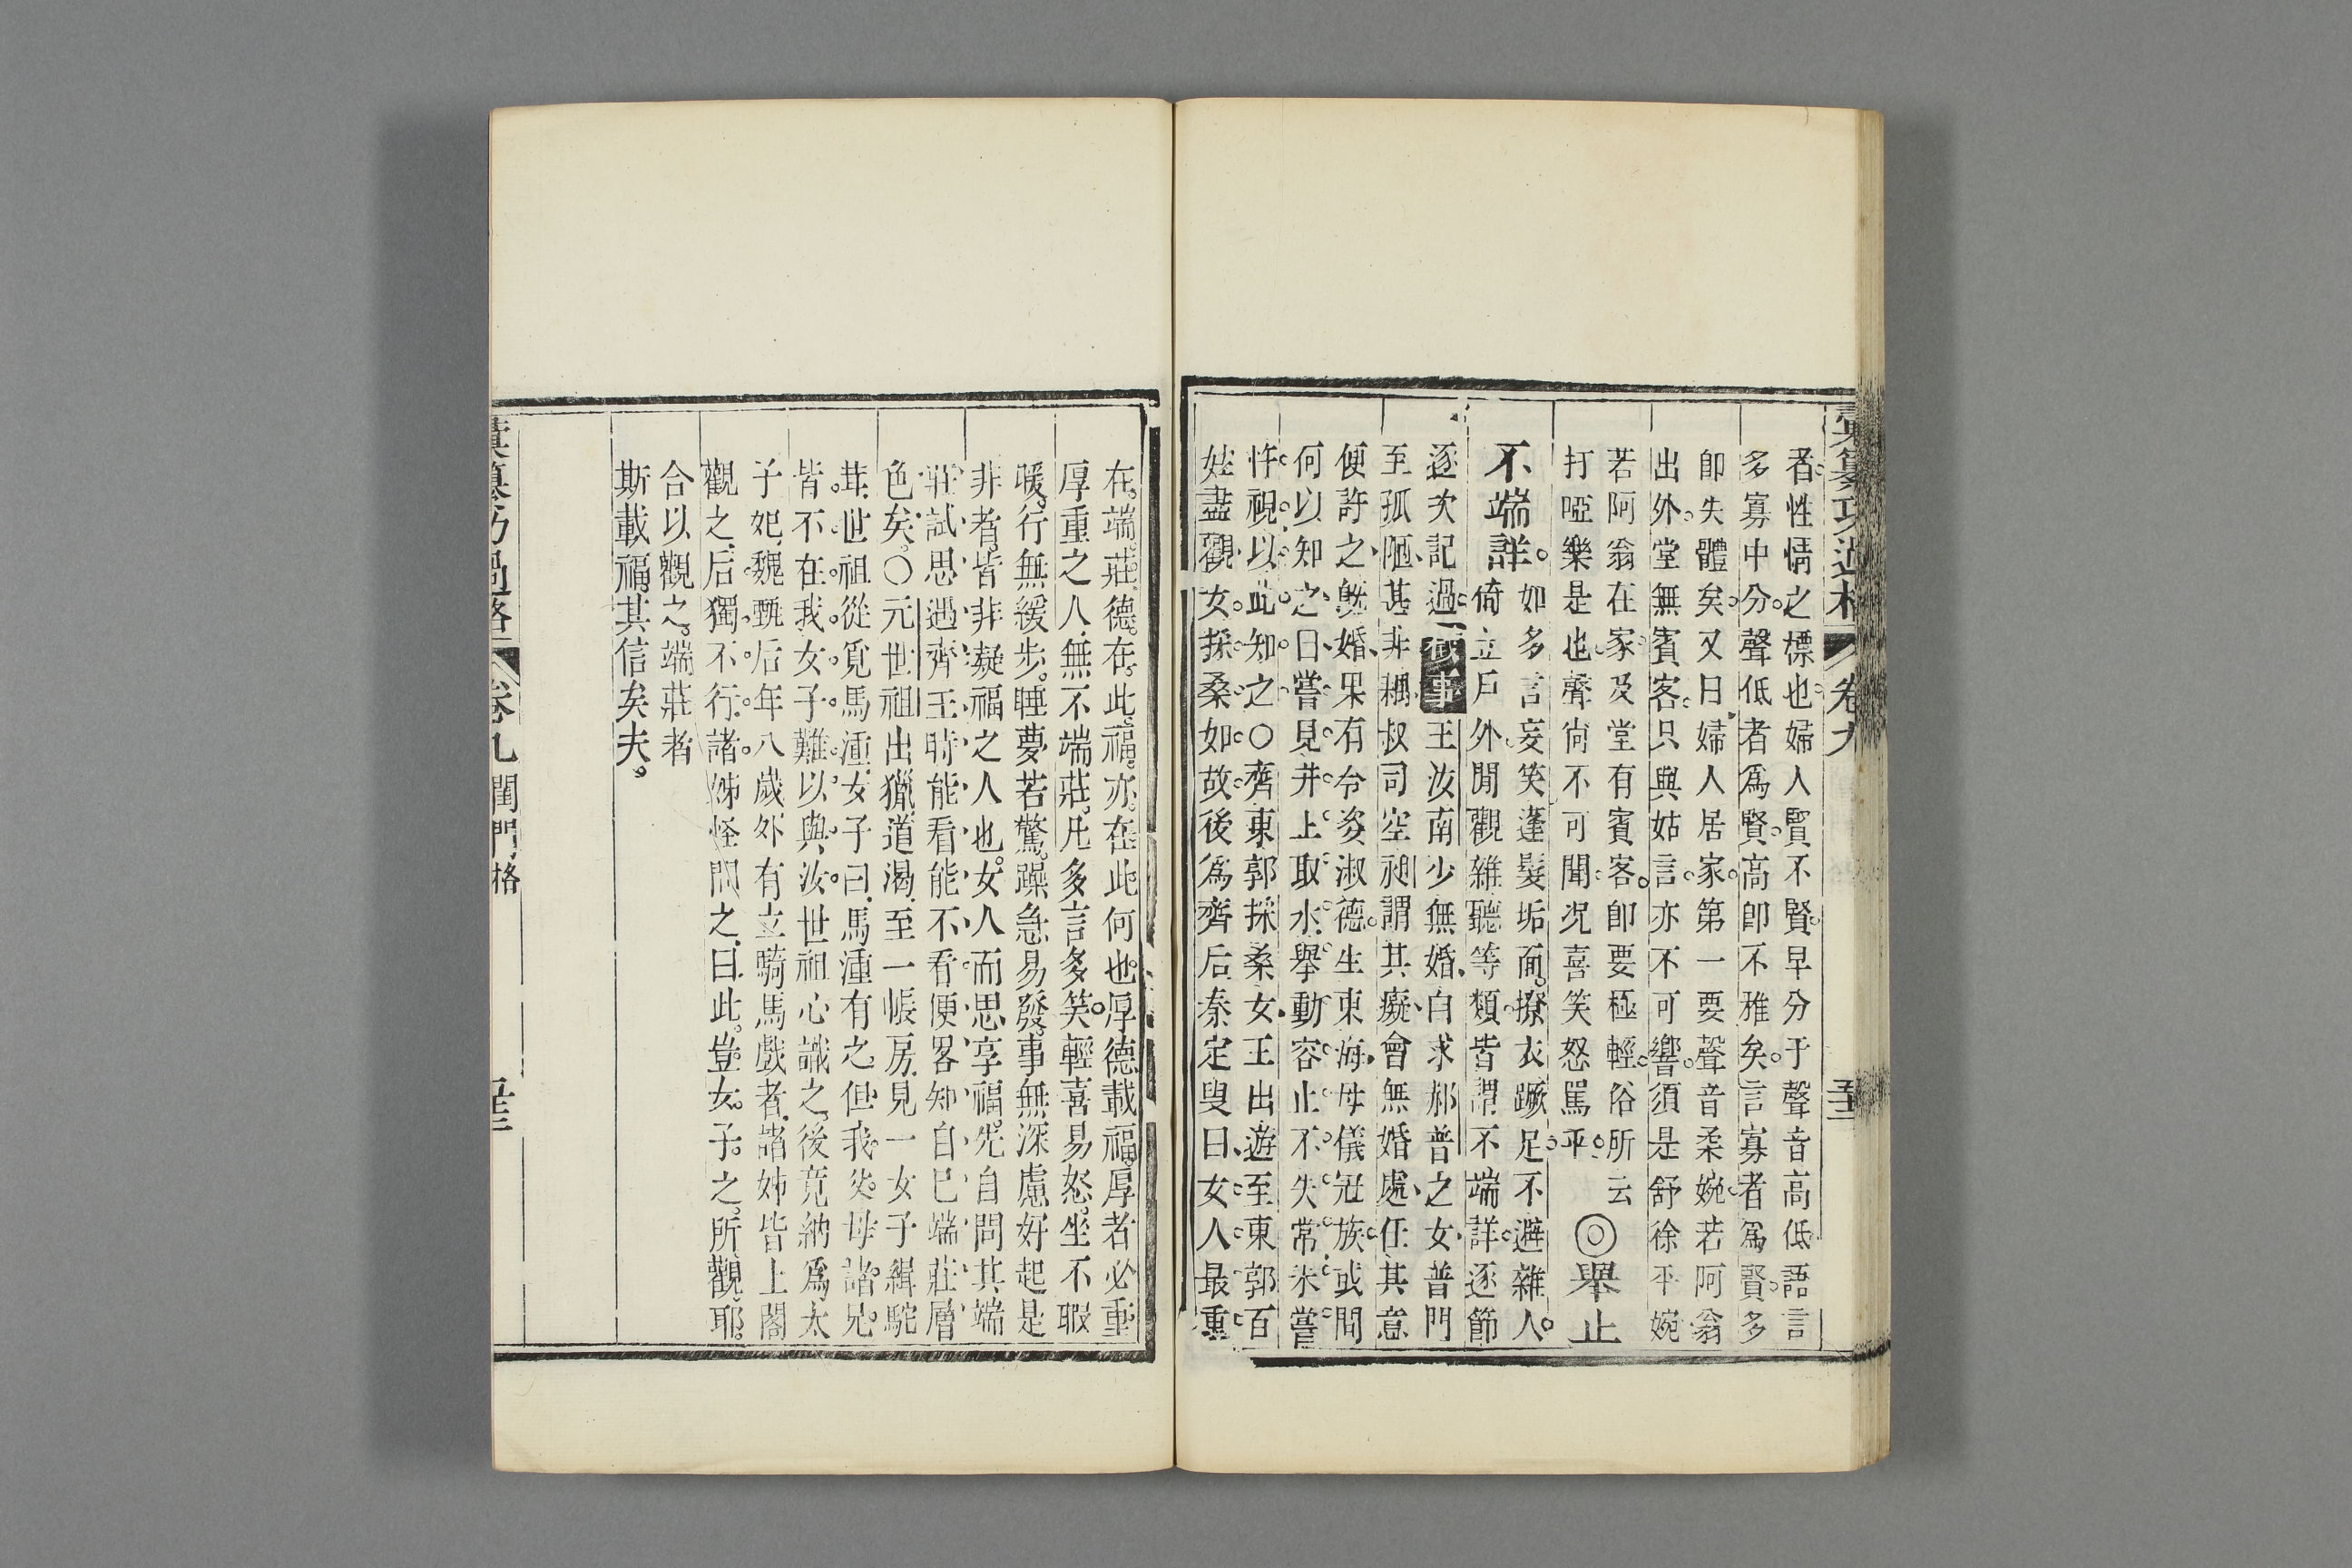 彙纂功過格 卷九 五十二
者。性情之標也。婦人賢不賢。早分于聲音高低。語言
多寡中分。聲低者爲賢。高卽不雅矣。言寡者爲賢。多
卽失體矣。又曰婦人居家。第一要聲音柔婉。若阿翁
出外。堂無賓客。只與姑言。亦不可響。須是舒徐平婉
若阿翁在家。及堂有賓客。卽要極輕。俗所云
打啞樂是也。聲尙不可聞。况喜笑怒罵乎。
◎舉止
不端詳。
如多言妄笑。蓬髮垢面。撩衣蹶足。不避雜人。
倚立戶外。閒觀雜聽等類。皆謂不端詳。逐節
逐次記過。 徵事 王汝南少無婚。自求郝普之女。普門
至孤陋。甚非耦。叔司空昶謂其癡。會無婚處。任其意
便許之。旣婚。果有令姿淑德。生東海。母儀冠族。或問
何以知之。曰嘗見井上取水。舉動容止不失常。未嘗
忤視。以此知之。○齊東郭採桑女。王出遊至東郭。百
姓盡觀。女採桑如故。後爲齊后。秦定叟曰。女人最重
在端莊。德在此。福亦在此。何也。厚德載福。厚者必重
厚重之人。無不端莊。凡多言多笑。輕喜易怒。坐不暇
暖。行無緩步。睡夢若驚。躁急易發。事無深慮好起是
非者。皆非凝福之人也。女人而思享福。先自問其端
莊。試思遇齊王時。能看能不看。便畧知自己端莊層
色矣。○元世祖出獵。道渴。至一帳房。見一女子緝駝
茸。世祖從覓馬湩。女子曰。馬湩有之。但我父母諸兄
皆不在。我女子難以與汝。世祖心識之。後竟納爲太
子妃。魏甄后年八歲。外有立騎馬戲者。諸姊皆上閣
觀之。后獨不行。諸姊怪問之。曰。此豈女子之所觀耶。
合以觀之。端莊者
斯載福。其信矣夫。
彙纂功過格 卷九 閨門格 五十二